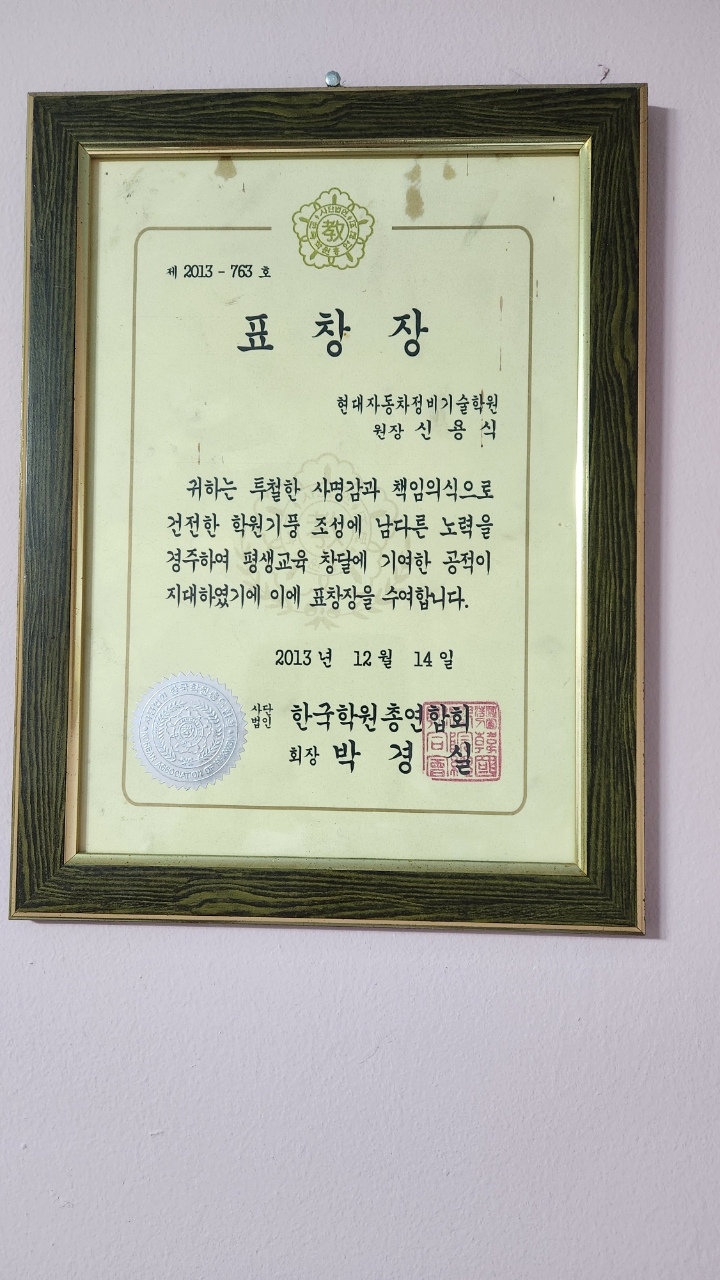 教
제 2013 - 763 호
표 창 장
현대자동차정비기술학원
원장 신 용 식
귀하는 투철한 사명감과 책임의식으로
건전한 학원기풍 조성에 남다른 노력을
경주하여 평생교육 창달에 기여한 공적이
지대하였기에 이에 표창장을 수여합니다.
2013 년 12 월 14 일
사단
법인 한국학원총연합회
회장 박 경 실